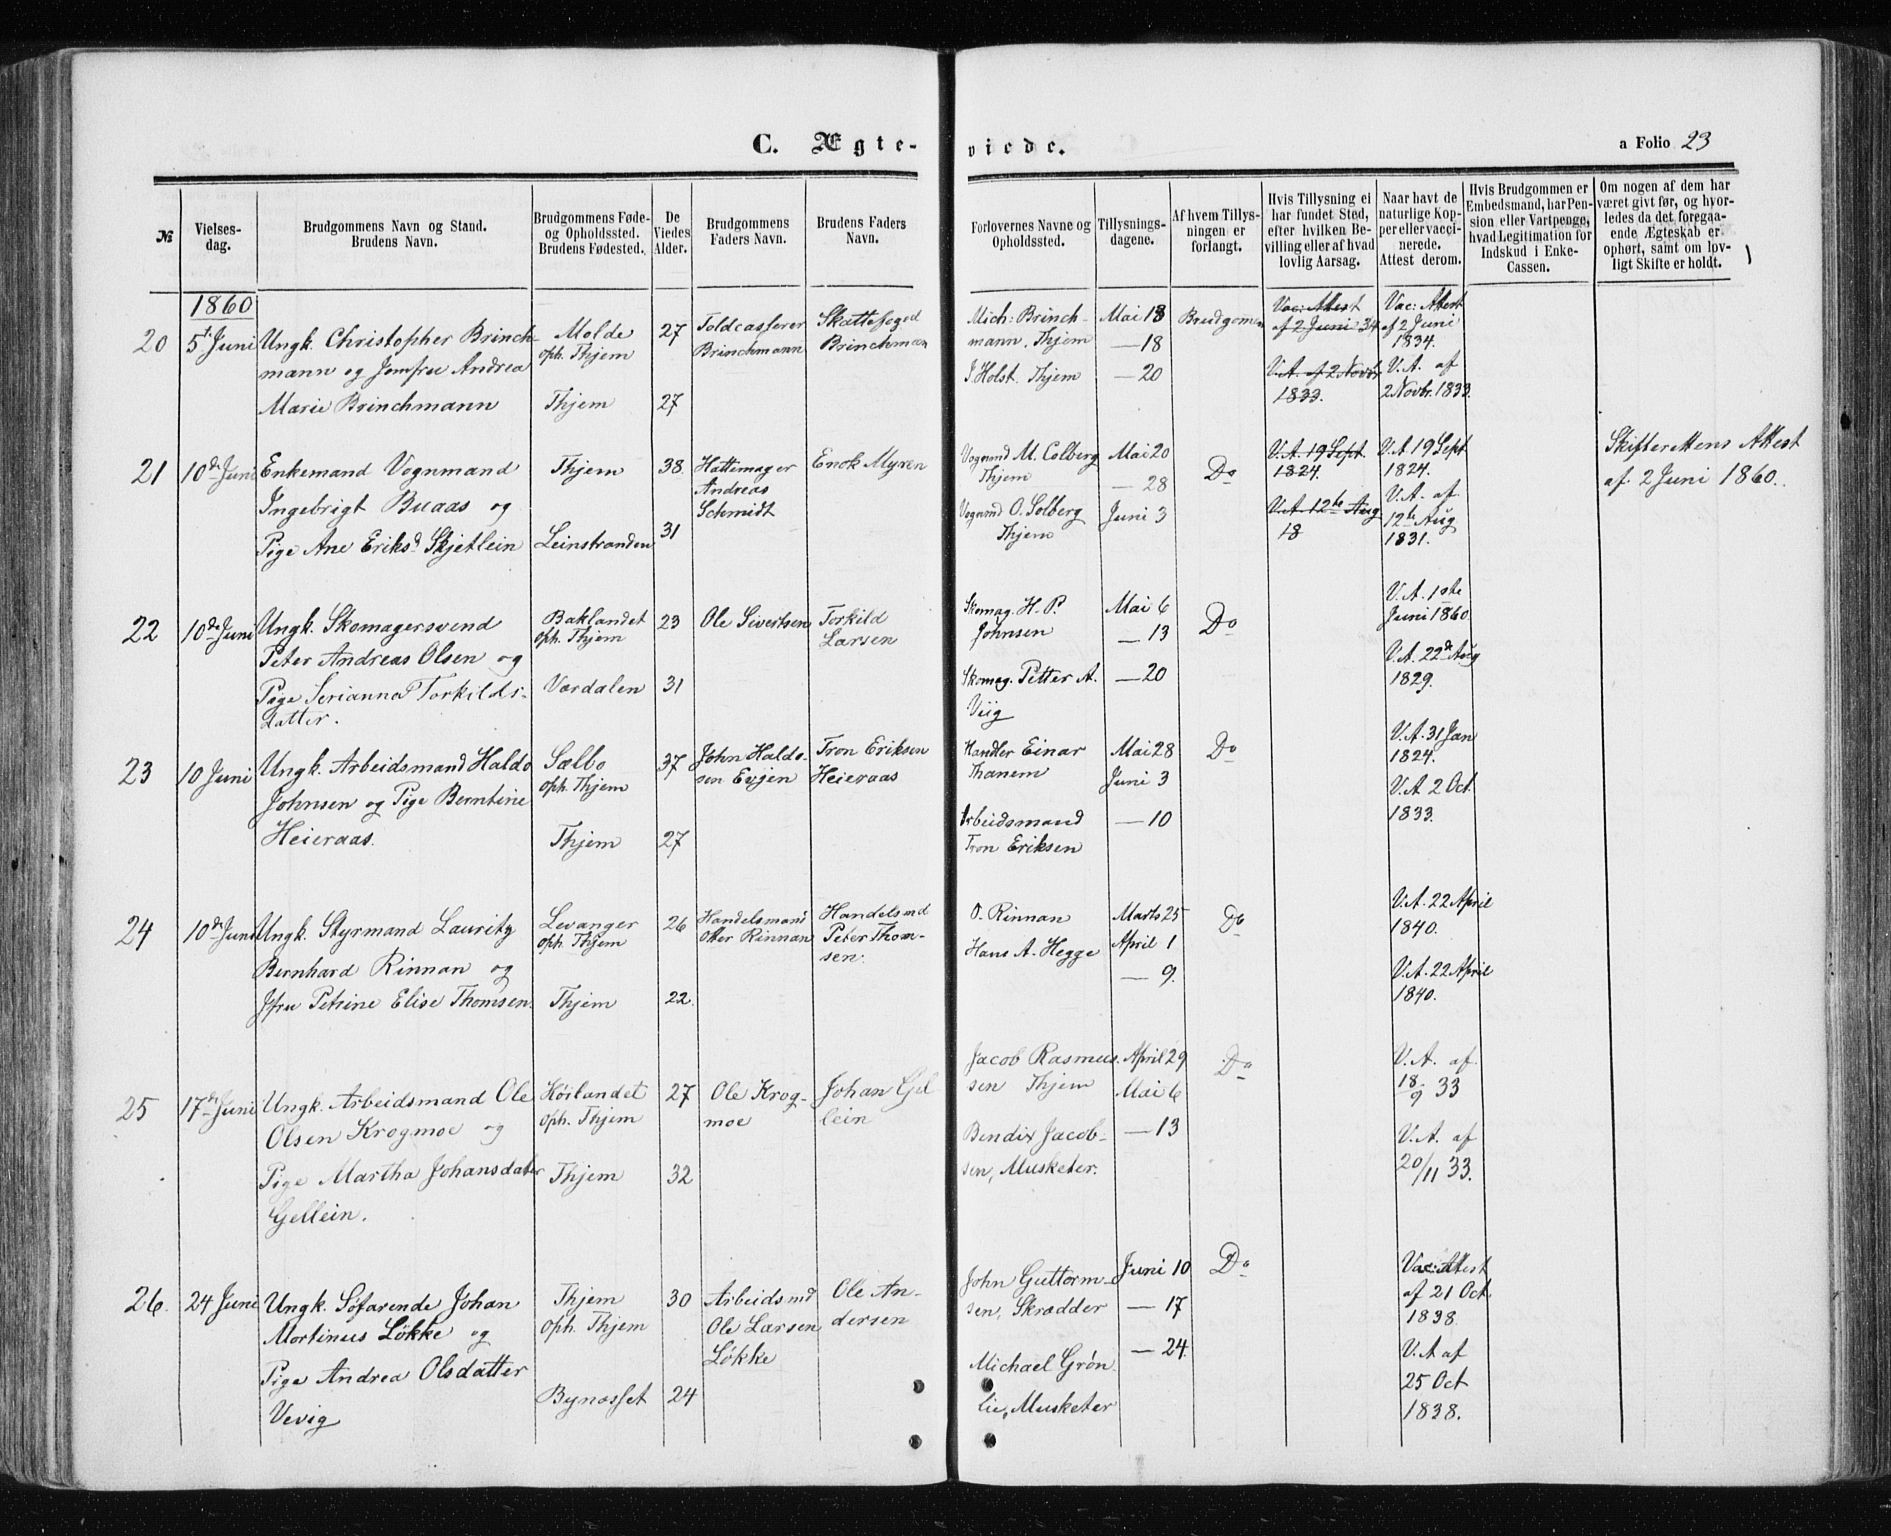 C. Ægte-
viede.
a Folio 23
№
Vielses-
dag.
Brudgommens Navn og Stand.
Brudens Navn.
Brudgommens Føde-
og Opholdssted.
Brudens Fødested.
De
Viedes
Alder.
Brudgommens
Faders Navn.
Brudens Faders
Navn.
Forlovernes Navne og
Opholdssted.
Tillysnings-
dagene.
Af hvem Tillys-
ningen er
forlangt.
Hvis Tillysning ei
har fundet Sted,
efter hvilken Be-
villing eller af hvad
lovlig Aarsag.
Naar havt de
naturlige Kop-
per eller vacci-
nerede.
Attest derom.
Hvis Brudgommen er
Embedsmand, har Pen-
sion eller Vartpenge,
hvad Legitimation for
Indskud i Enke-
Cassen.
Om nogen af dem har
været givt før, og hvor-
ledes da det foregaa-
ende Ægteskab er
ophørt, samt om lov-
ligt Skifte er holdt.
1860
20
5t Juni
Ungk. Christopher Brinch-
mann og Jomfru Andrea
Marie Brinchmann
Molde
oph. Thjem
Thjem
27
27
Toldcasserer
Brinchmann
Skattefoged
Brinchman
Mich: Brinch-
mann, Thjem
J. Holst. Thjem
Mai 18
— 18
— 20
Brudgomen
Vac: Attest
af 2 Juni 34
V.A. af 2 Novbr
1833.
Vac: Attest
af 2 Juni
1834.
V.A. af
2 Novbr. 1833.
21
10de Juni
Enkemand Vognmand
Ingebrigt Buaas og
Pige Ane Eriksd Skjetlein
Thjem
Leinstranden
38
31
Hattemager
Andreas
Schmidt
Enok Myren
Vognmd M. Colberg
Thjem
Vognmd O. Solberg
Thjem
Mai 20
— 28
Juni 3
Do
V.A. 19 Sept
1824.
V.A. 12te Aug
18
V.A 19 Sept
1824.
V.A. af
12te Aug
1831.
Skifterettens Attest
af 2 Juni 1860.
22
10de Juni
Ungk. Skomagersvend
Peter Andreas Olsen og
Pige Serianna Torkilds-
datter.
Baklandet
oph. Thjem
Værdalen
23
31
Ole Sivertsen
Torkild
Larsen
Skomag. H. P.
Johnsen
Skomag. Petter A.
Viig
Mai 6
— 13
— 20
Do
V.A. 1ste
Juni 1860
V.A. 22de Aug
1829.
23
10 Juni
Ungk. Arbeidsmand Haldo
Johnsen og Pige Berntine
Heieraas.
Sælbo
oph. Thjem
Thjem
37
27
John Haldo-
sen Evjen
Tron Eriksen
Heieraas
Handler Einar
Thanem
Arbeidsmand
Tron Eriksen
Mai 28
Juni 3
— 10
Do
V.A. 31 Jan
1824.
V.A 2 Oct
1833.
24
10de Juni
Ungk. Styrmand Lauritz
Bernhard Rinnan og
Jfru Petrine Elise Thomsen.
Levanger
oph. Thjem
Thjem
26
22
Handelsmand
Otter Rinnan
Handelsmd
Peter Thom-
sen.
O. Rinnan
Hans A. Hegge
Marts 25
April 1
— 9.
Do
V.A. 22 April
1840.
V.A. 22 April
1840.
25
17de Juni
Ungk. Arbeidsmand Ole
Olsen Krogmoe og
Pige Martha Johansdater
Gellein.
Høilandet
oph. Thjem
Thjem
27
32
Ole Krog-
moe
Johan Gel
lein
Jacob Rasmus-
sen Thjem
Bendix Jacob-
sen, Musketer.
April 29
Mai 6
— 13
Do
V.A. af
18/9 33
V.A. af
20/11 33.
26.
24 Juni
Ungk. Søfarende Johan
Martinus Løkke og
Pige Andrea Olsdatter
Vevig
Thjem
oph. Thjem
Bynæsset
30
24
Arbeidsmd
Ole Larsen
Løkke
Ole An-
dersen
John Guttorm-
sen, Skrædder
Michael Grøn
lie, Musketer
Juni 10
— 17
— 24
Do
Vac: Attest
af 21 Oct
1838.
V.A af
25 Oct
1838.